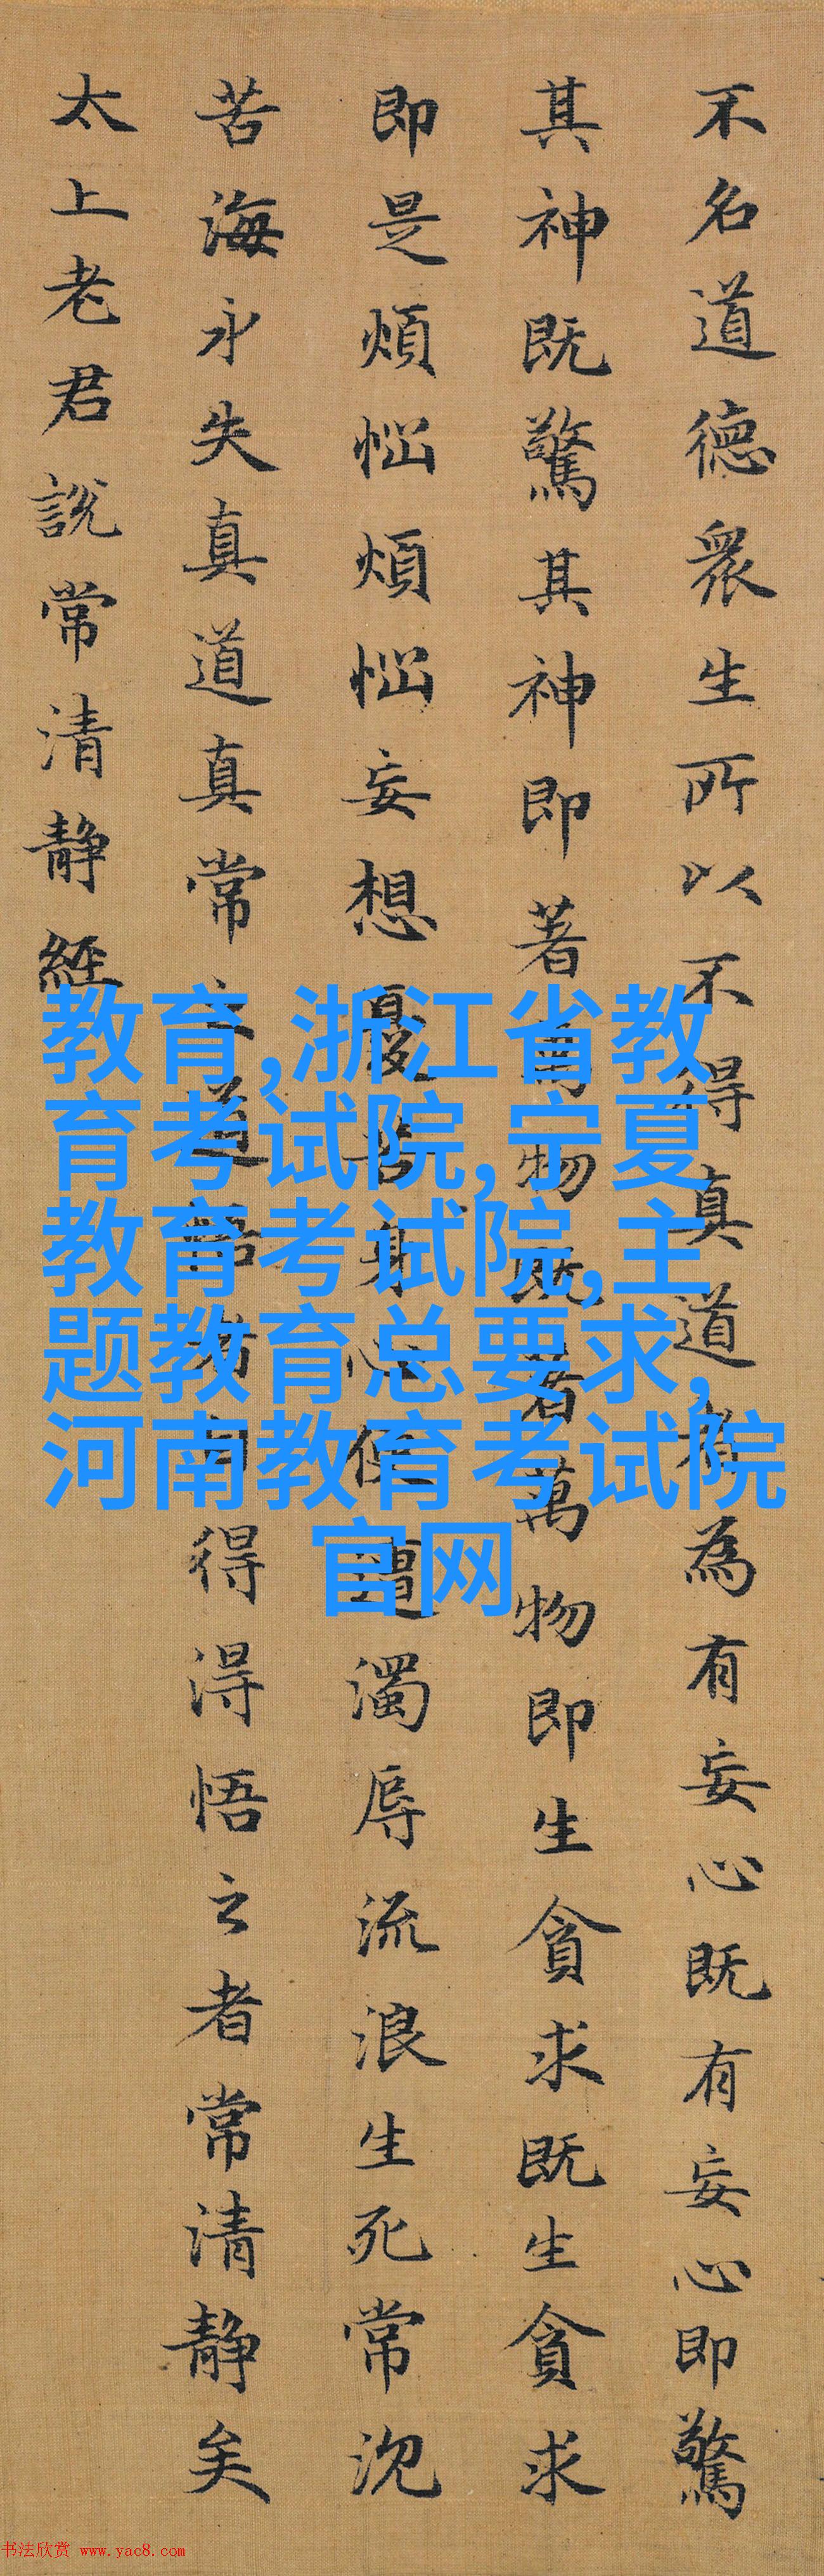 不名道德衆生所以不得真道者為有妄心既有妄心即驚
其神既驚其神即著萬物既著萬物即生貪求既生貪求
即是煩惱煩惱妄想憂苦身心便遭濁辱流浪生死常沉
苦海永失真道真常之道悟者自得得悟之者常清靜矣
太上老君說常清靜經
教育,浙江省教
育考试院,宁夏
教育考试院,主
题教育总要求,
河南教育考试院
官网
书法欣赏 www.yac8.com